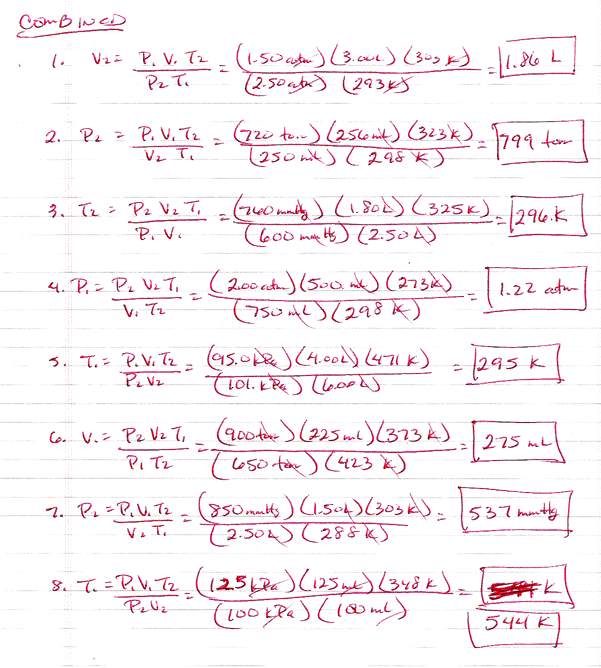 COMBINED
1. V2 = P1 V1 T2 / P2 T1 = (1.50 atm)(3.00L)(303 K) / (2.50 atm)(293K) = 1.86 L
2. P2 = P1 V1 T2 / V2 T1 = (720 torr)(256 mL)(323K) / (250 mL)(298 K) = 799 torr
3. T2 = P2 V2 T1 / P1 V1 = (760 mmHg)(1.80L)(325K) / (600 mm Hg)(2.50L) = 296.K
4. P1 = P2 V2 T1 / V1 T2 = (2.00 atm)(500. mL)(273K) / (750 mL)(298 K) = 1.22 atm
5. T1 = P1 V1 T2 / P2 V2 = (95.0 kPa)(4.00L)(471 K) / (101. kPa)(6.00L) = 295 K
6. V1 = P2 V2 T1 / P1 T2 = (900 torr)(225 mL)(373 K) / (650 torr)(423 K) = 275 mL
7. P2 = P1 V1 T2 / V2 T1 = (850 mmHg)(1.50L)(303K) / (2.50L)(288K) = 537 mmHg
8. T1 = P1 V1 T2 / P2 V2 = (125 kPa)(125 mL)(348 K) / (100 kPa)(100 mL) = K
544 K